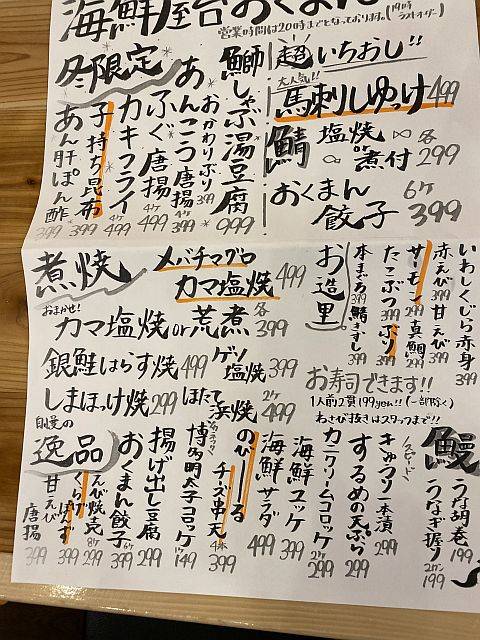 海鮮屋台おくまん
営業時間は20時までとなっております。(19時ラストオーダー)
超いちおし!!
大人気!!
馬刺しゆっけ 499
鯖 塩焼 煮付 各299
おくまん餃子 6ケ 399
冬限定
鰤しゃぶ湯豆腐 999
おかわりぶり 399
あんこう唐揚 4ケ 399
ふぐ唐揚 4ケ 499
カキフライ 4ケ 499
子持ち昆布 399
あん肝ぽん酢 399
お造里
いわし くじら赤身 399
赤えび 399 甘えび 399
サーモン 299 真鯛 299
たこぶつ 399 ぶり 399
本まぐろ 399 鯖きずし 399
煮焼
メバチマグロ
カマ塩焼 499
おまかせ!
カマ塩焼or荒煮 各399
銀鮭はらす焼 499
ゲソ塩焼 399
しまほっけ焼 299
ほたて浜焼 2ケ 499
お寿司できます!!
1人前2貫199yen!!(一部除く)
わさび抜きはスタッフまで!!
鰻
うな胡巻 199
うなぎ握り 2カン 199
きゅうり一本漬 299
するめの天ぷら 299
カニクリームコロッケ 2ケ 299
海鮮ユッケ 399
海鮮サラダ 499
のび〜るチーズ串天 4本 399
博多明太子コロッケ 1ケ 149
揚げ出し豆腐 299
おくまん餃子 6ケ 399
えび焼売 8ケ 299
くらげぽんず 399
甘えび唐揚 399
自慢の
逸品